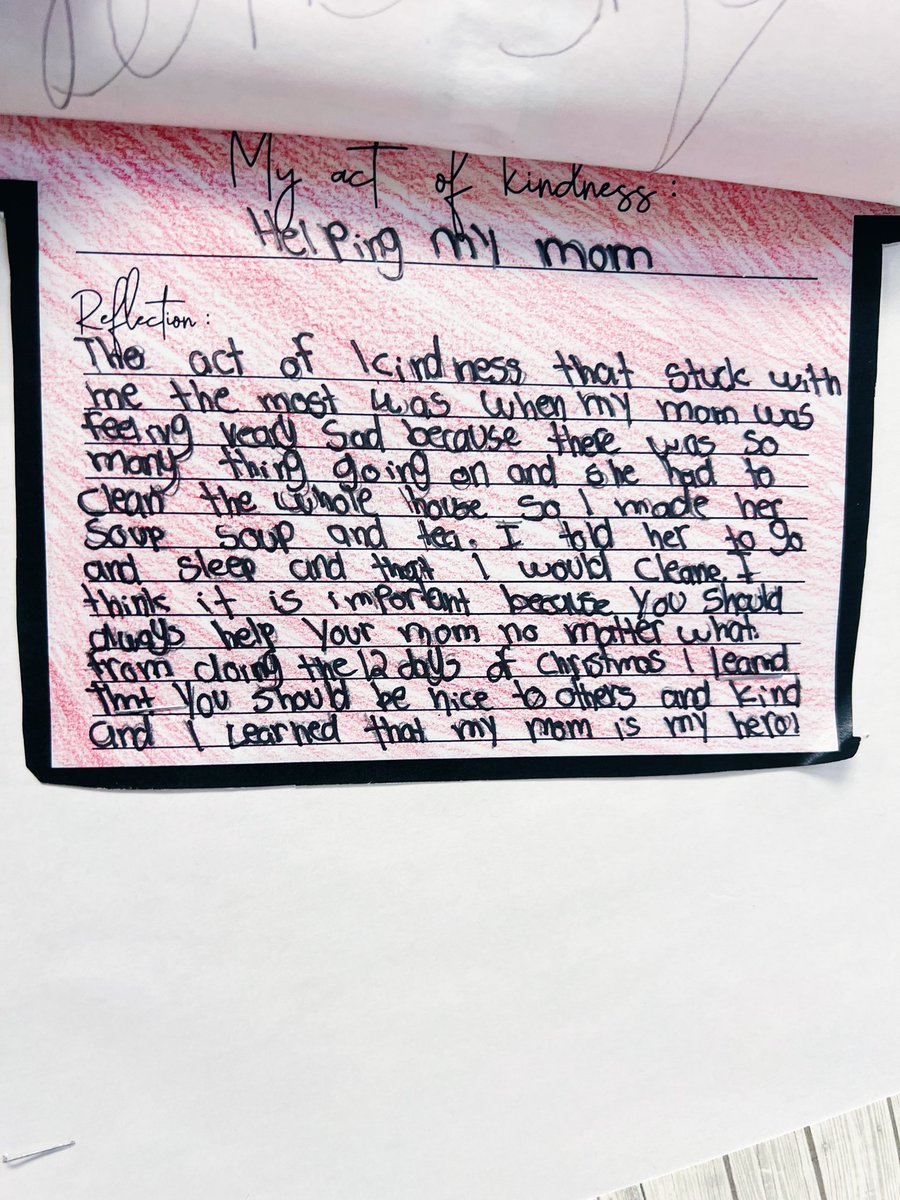 My act of kindness:
Helping my mom
Reflection:
The act of kindness that stuck with
me the most was when my mom was
feeling veary sad because there was so
many thing going on and she had to
clean the whole house so I made her
soup soup and tea. I told her to go
and sleep and that I would cleane, I
think it is important because you should
always help your mom no matter what.
from doing the 12 days of christmas I leand
that you should be nice to others and kind
and I learned that my mom is my hero!